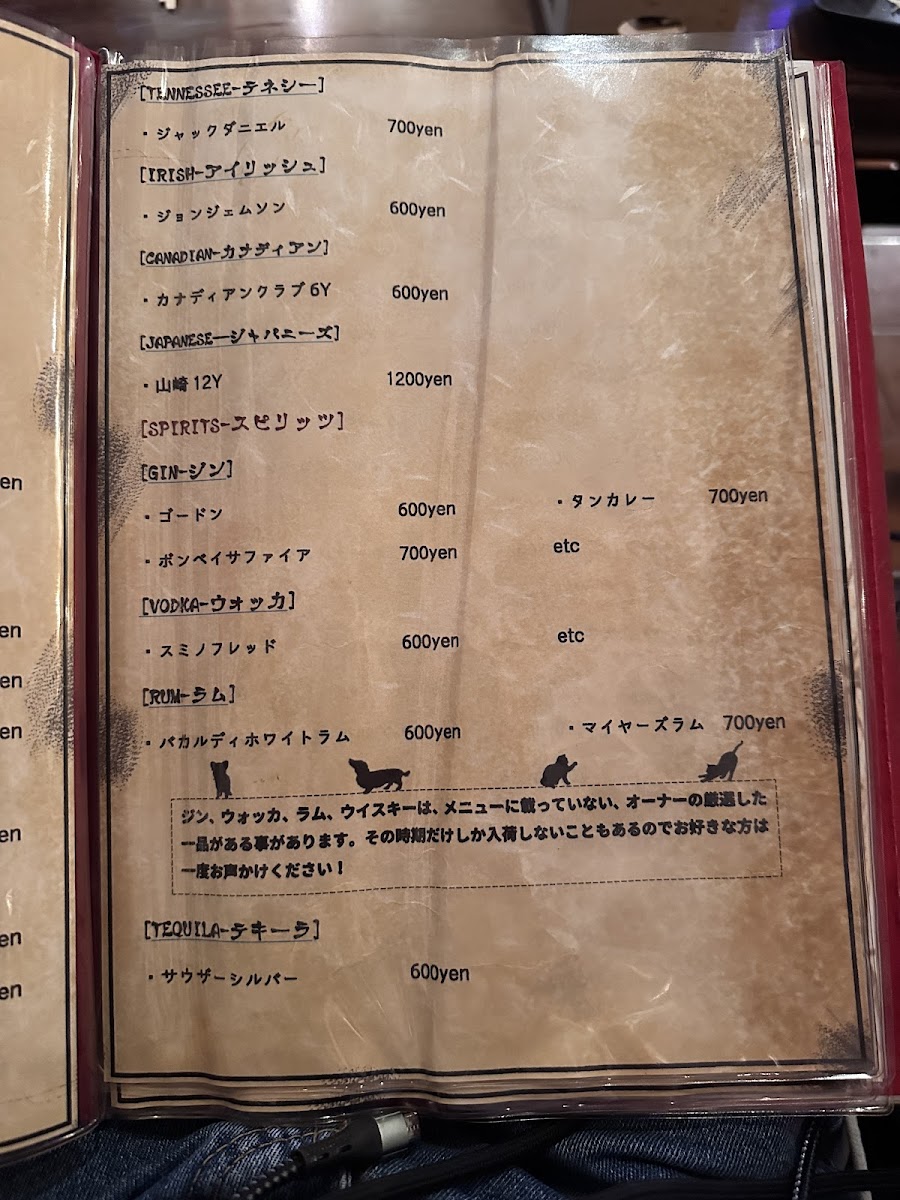 [TENNESSEE-テネシー]
・ジャックダニエル 700yen
[IRISH-アイリッシュ]
・ジョンジェムソン 600yen
[CANADIAN-カナディアン]
・カナディアンクラブ 6Y 600yen
[JAPANESE-ジャパニーズ]
・山崎 12Y 1200yen
[SPIRITS-スピリッツ]
[GIN-ジン]
・ゴードン 600yen ・タンカレー 700yen
・ボンベイサファイア 700yen etc
[VODKA-ウォッカ]
・スミノフレッド 600yen etc
[RUM-ラム]
・バカルディホワイトラム 600yen ・マイヤーズラム 700yen
ジン、ウォッカ、ラム、ウイスキーは、メニューに載っていない、オーナーの厳選した
一品がある事があります。その時期だけしか入荷しないこともあるのでお好きな方は
一度お声かけください！
[TEQUILA-テキーラ]
・サウザーシルバー 600yen
en
en
en
en
en
en
en